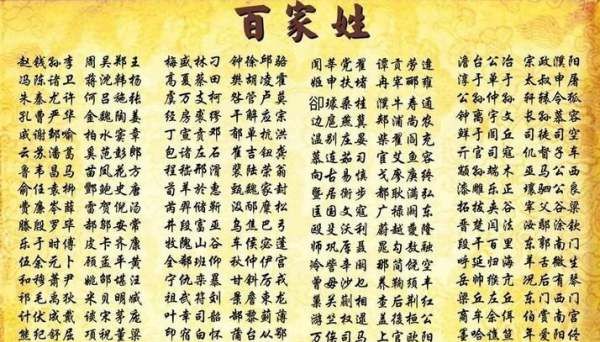 百家姓
赵钱孙李 周吴郑王 梅盛林刁 钟徐邱骆 闻莘党翟 谭贡劳逄 澹台公冶 宗政濮阳
冯陈褚卫 蒋沈韩杨 高夏蔡田 樊胡凌霍 姬申扶堵 冉宰郦雍 淳于单于 太叔申屠
朱秦尤许 何吕施张 虞万支柯 昝管卢莫 郤璩桑桂 濮牛寿通 公孙仲孙 轩辕令狐
孔曹严华 金魏陶姜 经房裘缪 干解应宗 边扈燕冀 郏浦尚农 钟离宇文 长孙慕容
戚谢邹喻 柏水窦章 丁宣贲邓 郁单杭洪 温别庄晏 柴瞿阎充 鲜于闾丘 司徒司空
云苏潘葛 奚范彭郎 包诸左石 崔吉钮龚 慕连茹习 宦艾鱼容 亓官司寇 仉督子车
鲁韦昌马 苗凤花方 程嵇邢滑 裴陆荣翁 向古易慎 戈廖庾终 颛孙端木 巫马公西
俞任袁柳 酆鲍史唐 荀羊於惠 甄曲家封 暨居衡步 都耿满弘 漆雕乐正 壤驷公良
费廉岑薛 雷贺倪汤 芮羿储靳 汲邴糜松 匡国文寇 广禄阙东 拓跋夹谷 宰父谷梁
滕殷罗毕 郝邬安常 井段富巫 乌焦巴弓 欧殳沃利 蔚越夔隆 晋楚闫法 汝鄢涂钦
乐于时傅 皮卞齐康 牧隗山谷 车侯宓蓬 师巩厍聂 晁勾敖融 段干百里 东郭南门
伍余元卜 顾孟平黄 全郗班仰 秋仲伊宫 冷訾辛阚 那简饶空 呼延归海 羊舌微生
和穆萧尹 姚邵湛汪 宁仇栾暴 甘钭厉戎 曾毋沙乜 养鞠须丰 岳帅缑亢 况后有琴
祁毛禹狄 米贝明臧 祖武符刘 景詹束龙 巢关蒯相 查后荆红 梁丘左丘 东门西门
计伏成戴 谈宋茅庞 叶幸司韶 郜黎蓟薄 游竺权逯 盖益桓公 商牟佘佴 伯赏南宫
熊纪舒屈 项祝董梁 印宿白怀 蒲邰从鄂 万俟司马 上官欧阳 墨哈谯笪 年爱阳佟